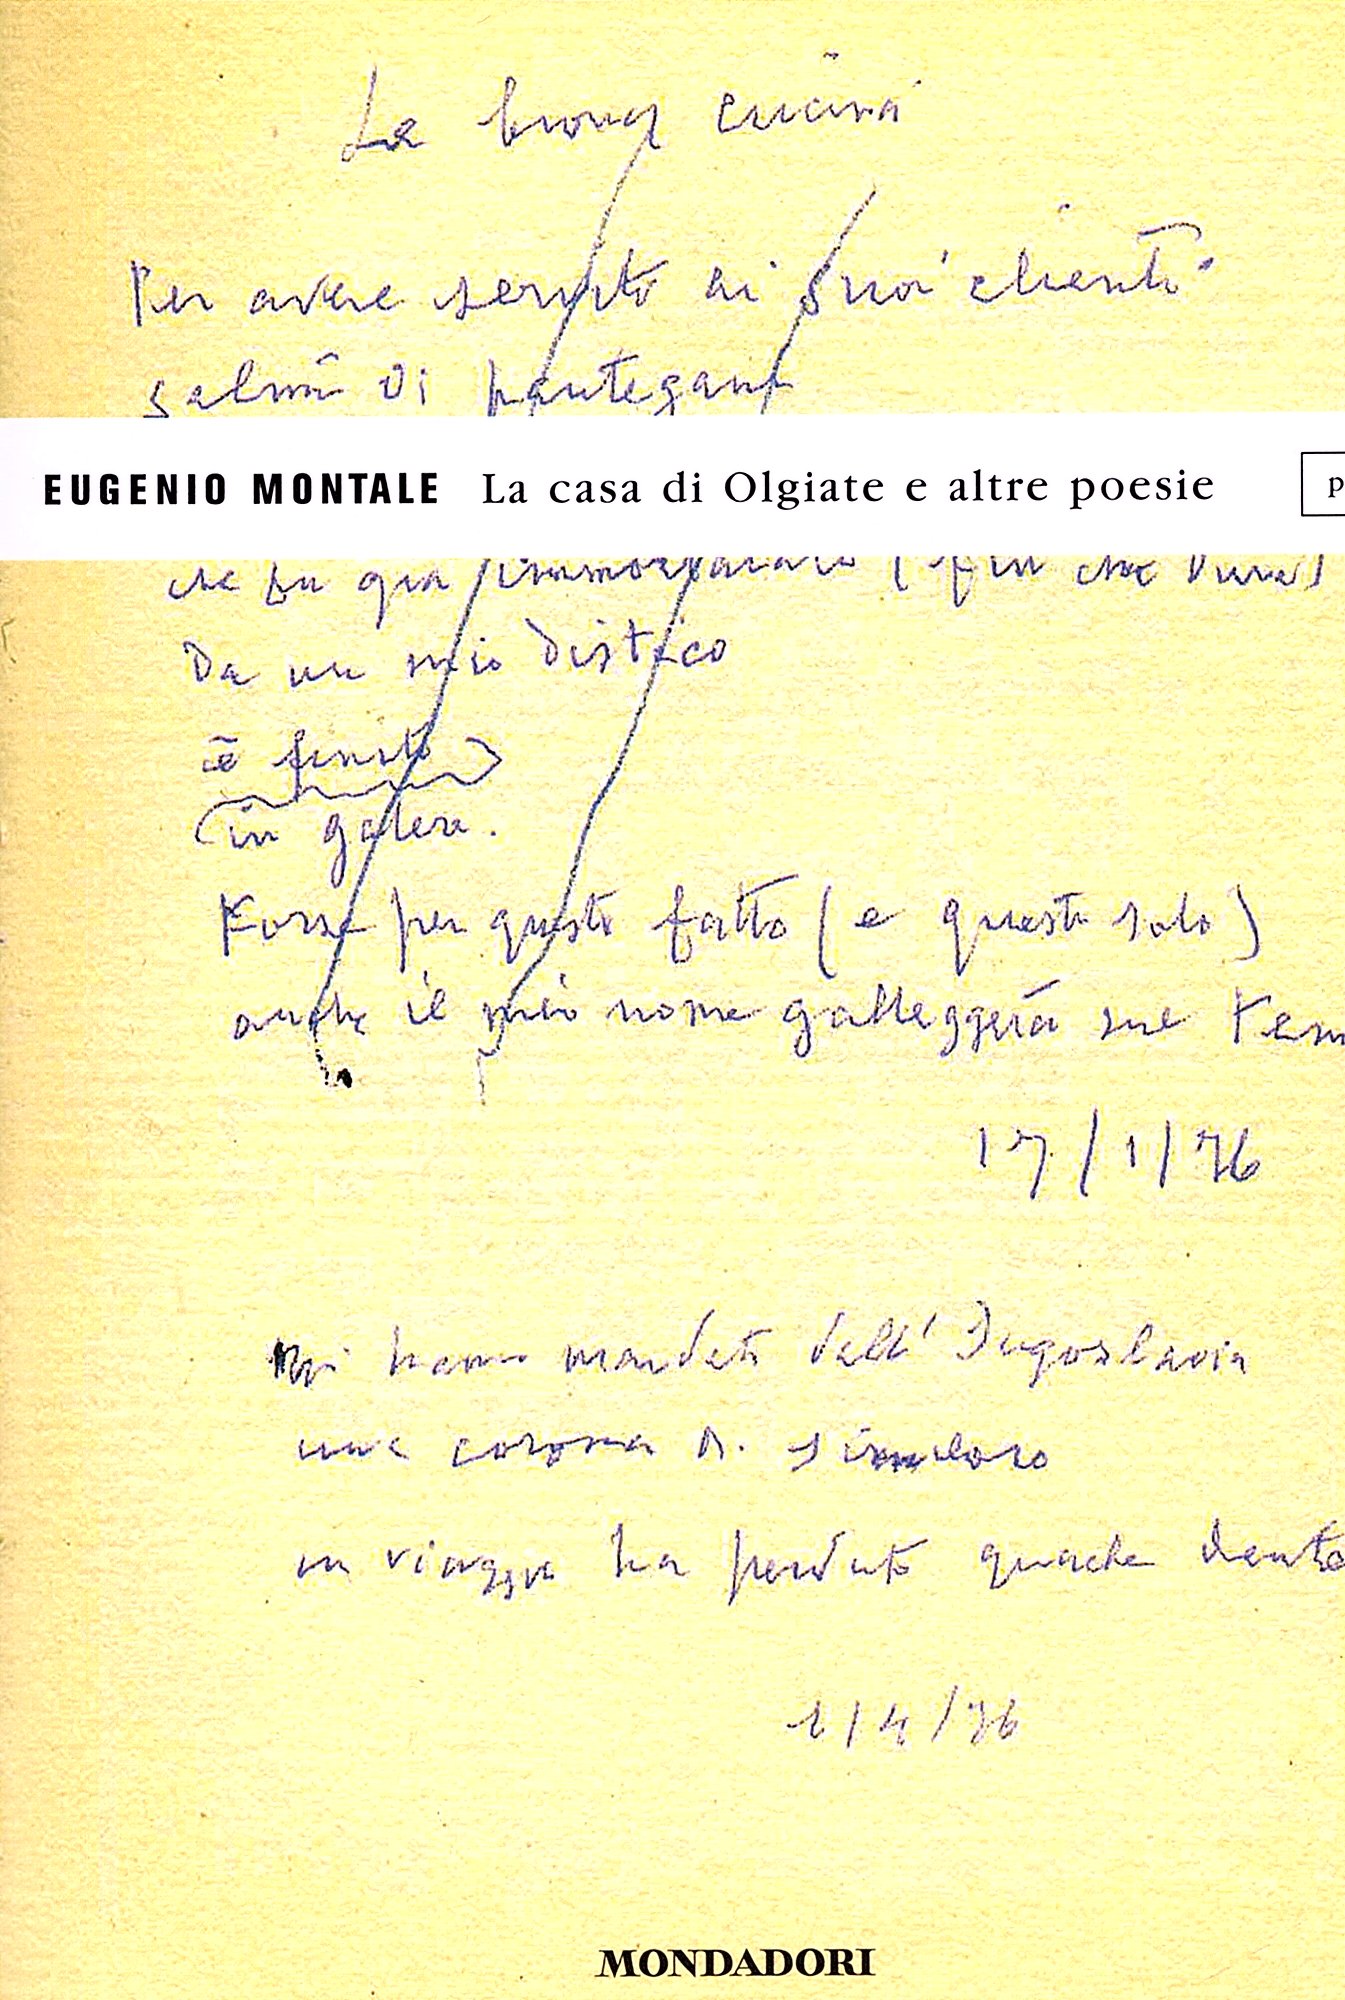 La buona cucina
Per avere servito ai suoi clienti
salmì di pantegana
EUGENIO MONTALE La casa di Olgiate e altre poesie p
che fu già immortalato (fin che dura)
Da un mio distico
è finito
in galera.
Forse per questo fatto (e questo solo)
anche il mio nome galleggerà sul tem
17/1/76
Mi hanno mandato dall'Jugoslavia
una corona di similoro
in viaggio ha perduto qualche dente
1/4/76
MONDADORI